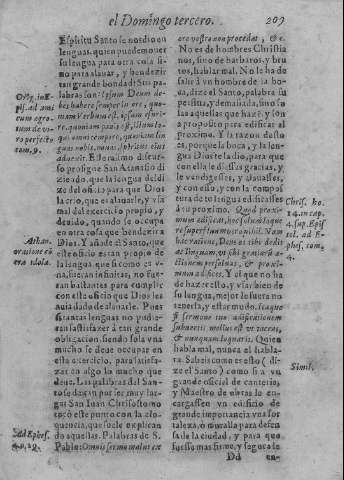 el Domingo tercero. 209
Espiritu Santo se nos dio en
lenguas, quien puede mouer
su lengua para otra cosa si-
no para alauar, y bendezir
tan grande bondad? Sus pa-
labras son: Ipsum Deum de-
bes habere semper in ore, quo-
niam Verbum est,
quoniam pax est, illum lo-
qui
guis nobis
El mismo discur-
so prosigue San Atanasio di-
ziendo, que la lengua desdi-
ze del oficio para que Dios
la crio, que es alauarle, y vsa
mal del exercicio propio, y
deuido, quando se ocupa
en otra cosa que bendezir a
Dios. Y añade el Santo, que
este oficio es tan propio de
la lengua, que si como es v-
na, fueran infinitas, no fue-
ran bastantes para cumplir
con este oficio que Dios les
auia dado de alabarle. Pues
si tantas lenguas no pudie-
ran satisfazer à tan grande
obligacion, siendo sola vna
mucho se deue ocupar en
este exercicio, para satisfa-
zer en algo lo mucho que
deue. Las palabras del San-
to se dexan por ser muy lar-
gas San Iuan Chrisostomo
tocò este punto con la elo-
quencia, que suele explican-
do aquellas. Palabras de S.
Pablo: Omnis sermo malus ex
Orig. in E-
pist. ad ami
cum ægro-
tum de vi-
ro perfecto
tom. 9.
Athan.
oratione cõ
tra idola.
Ad Ephes.
4. n. 29.
ore vestro non procedat, &c.
No es de hombres Christia-
nos, sino de barbaros, y bru-
tos, hablar mal. No le ha de
salir à vn hombre de la bo-
ca, dize el Santo, palabra su-
persflua, y demasiada, sino so-
las aquellas que haze, y son
a proposito para edificar al
proximo. Y la razon desto
es, porque la boca, y la len-
gua Dios te la dio, para que
con ella le diesses gracias, y
le vendigesses, y vsausses,
y con esso, y con la compos-
tura de tu lengua edificasses
à tu proximo. Quod proxi-
mum edificat, hoc solum loquere
re superfluum vero nihil. Nam
hac ratione, Deus os tibi dedit
ac linguam, vt sibi gratiarũ a-
ctionem persoluas, & proxi-
mum ædifices. Y el que no ha
de hazer esto, y vsar bien de
su lengua, mejor le fuera no
tenerla, y estar mudo. Itaque
si sermone suo ædificationem
subuertis melius est vt taceas,
& nunquam loquaris. Quien
habla mal, nunca el hablara.
Sabeis como es esto (di-
ze el Santo) como si a vn
grande oficial de canterio,
y Maestro de obras le en-
cargassen vn edificio de
grande importancia vna for-
taleza, ò muralla para defen-
sa de la ciudad, y para que
fuesse mas firme, y segura le
Chris. ho.
14. in cap.
4. sup. Epist
tol. ad E-
phes. tom.
4.
Simil.
Dd en-